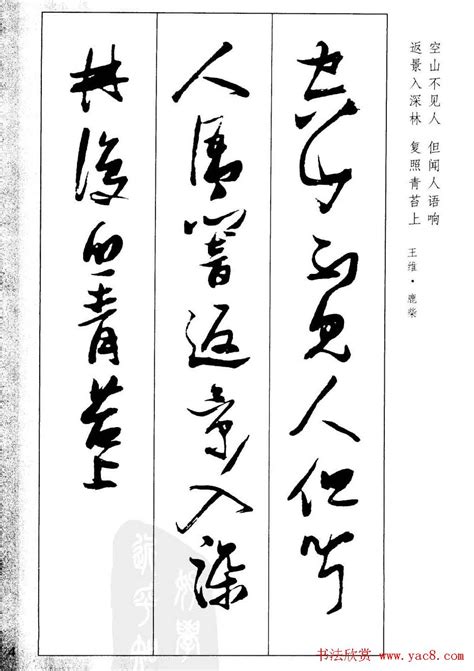 空山不见人 但闻人语响
返景入深林 复照青苔上
王维·鹿柴
空山不見人但聞
人語響返景入深
林復照青苔上
书法欣赏 www.yac8.com